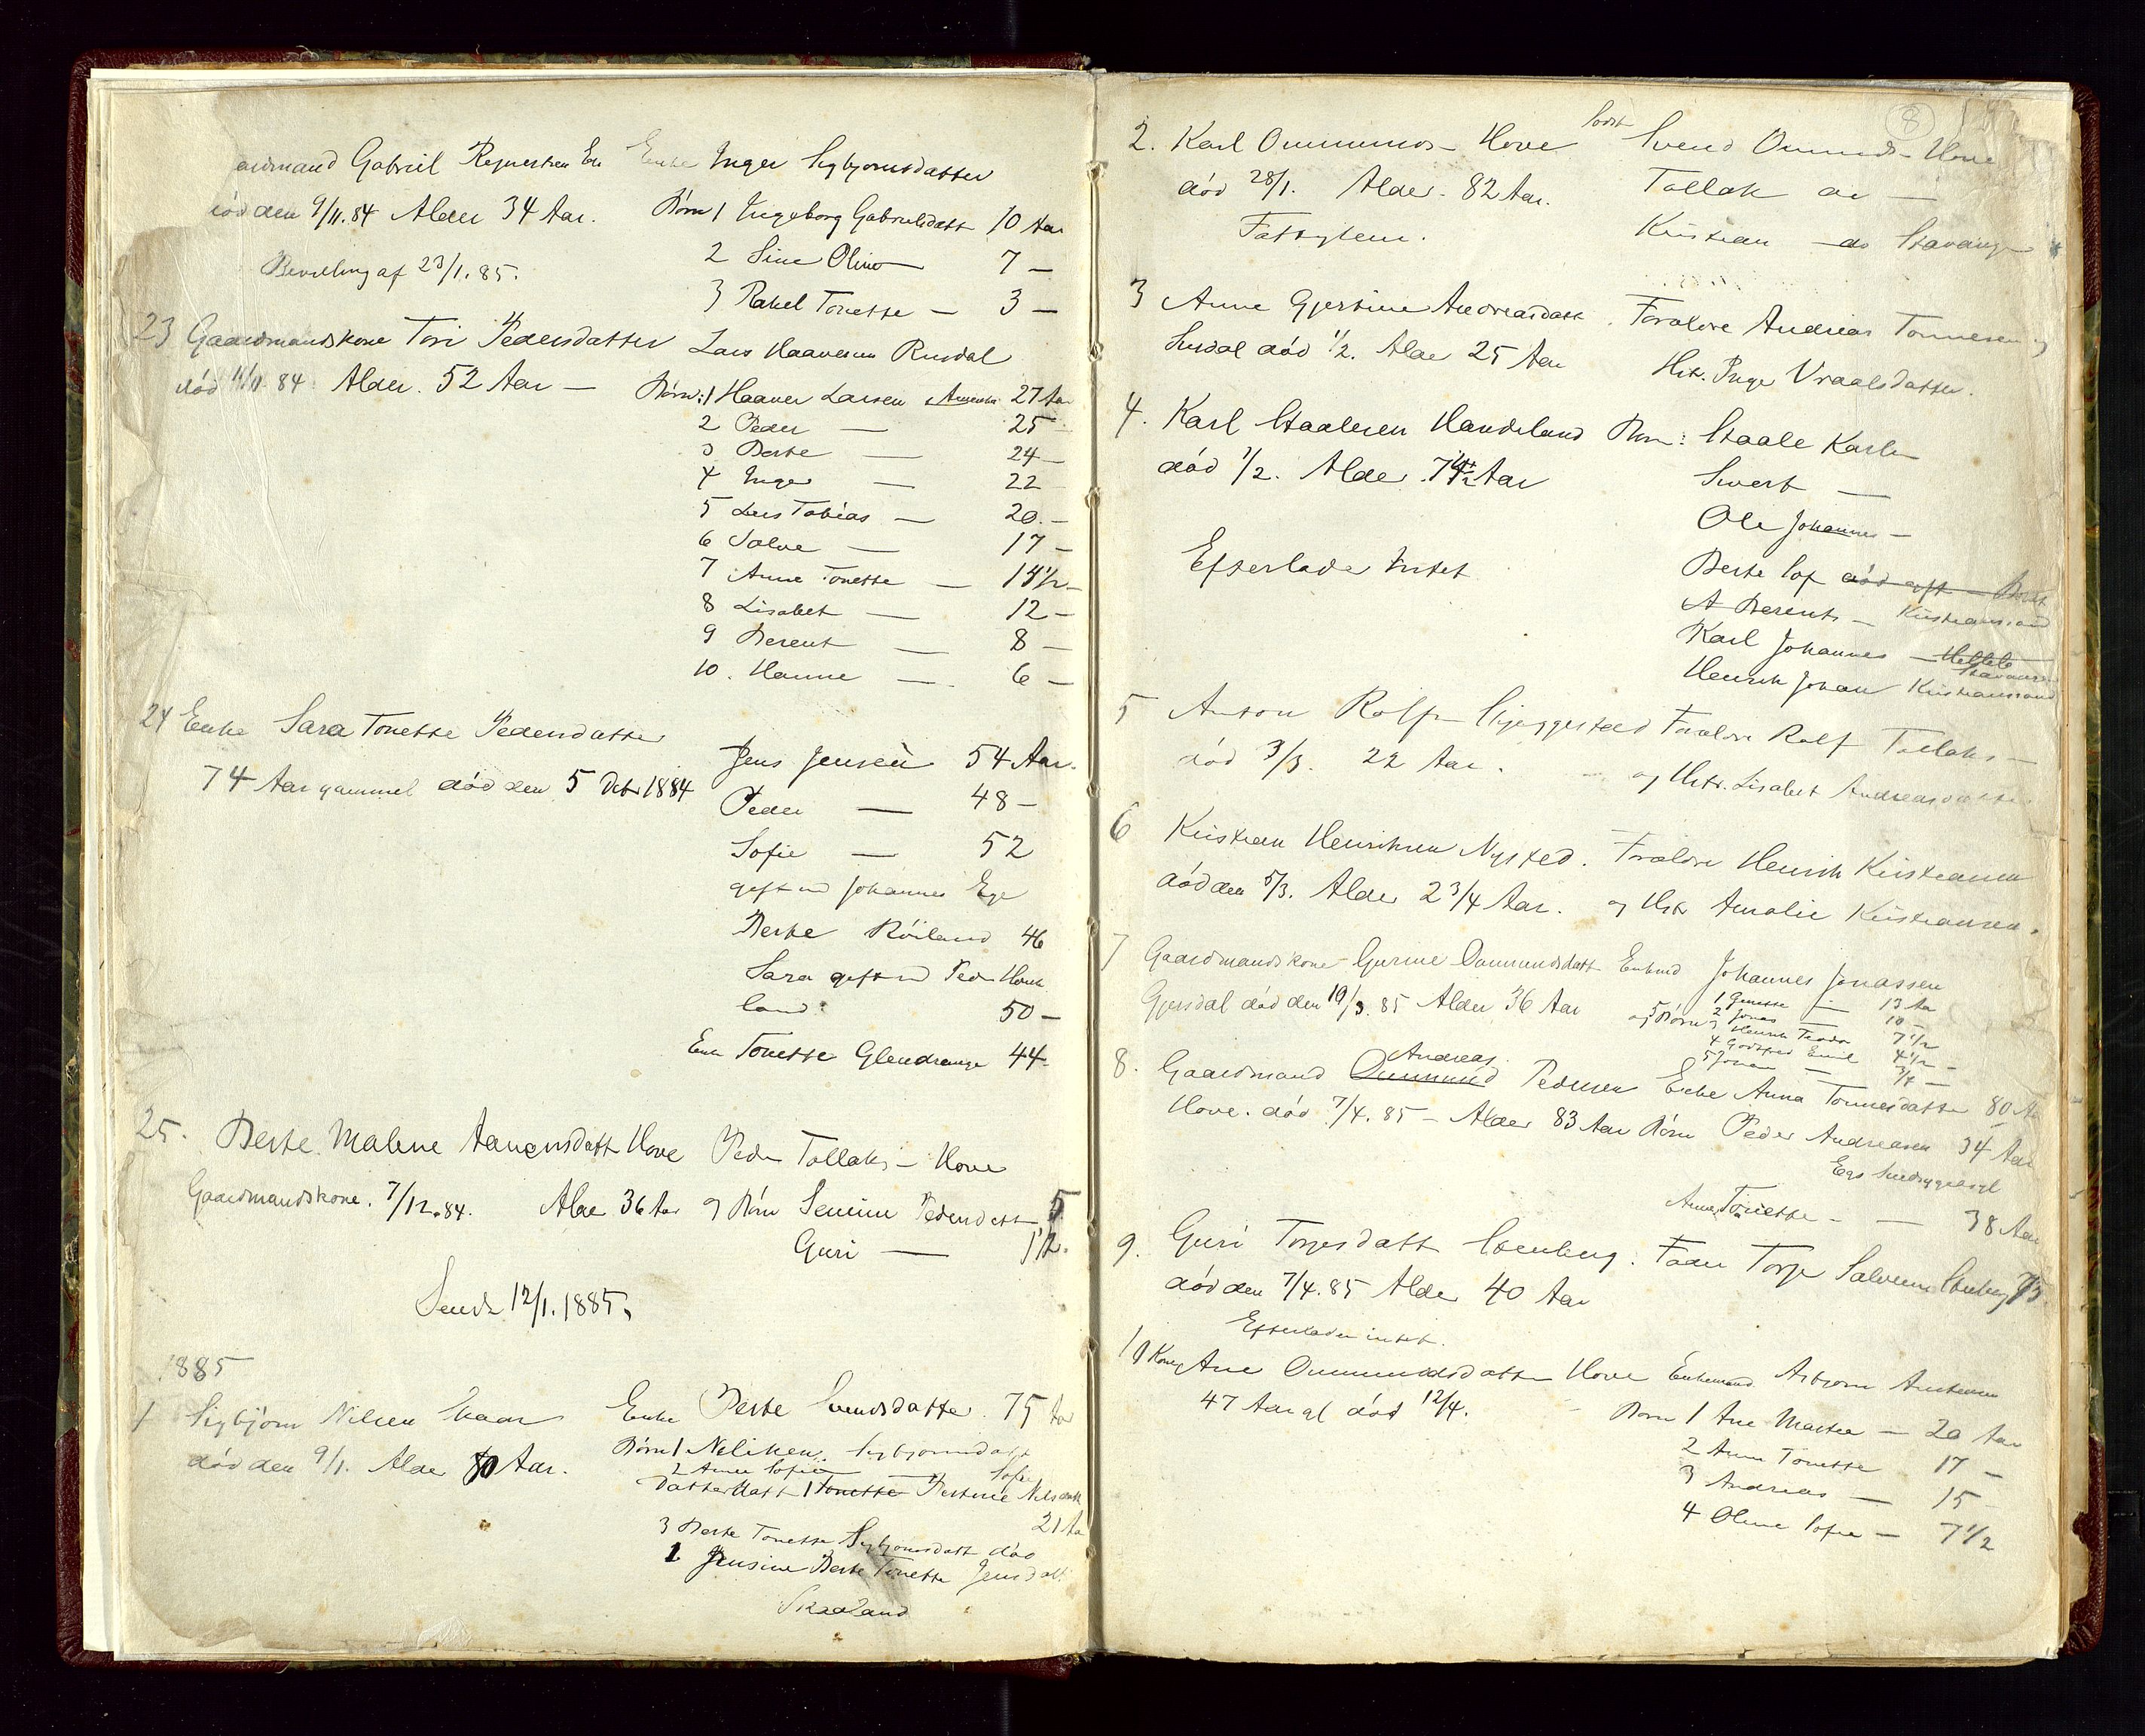 Gabriel Enke Inger Sigbjørnsdatter
død den 9/11.84 Alder 34 Aar. Børn 1 Ingeborg Gabrielsdatt 10 Aar
Bevilling af 23/1.85. 2 Sine Oline — 7 —
3 Rakel Tonette — 3 —
23 Gaardmandskone Tori Pedersdatter Lars Haaversen Rusdal
død 84 Alder. 52 Aar — Børn: 1 Haaver Larsen Amerika 27 Aar
2 Peder — 25
3 Berte — 24 —
4 Inger — 22
5 Lars Tobias — 20. —
6 Salve — 17 —
7 Anne Tonette — 14 1/2 —
8 Lisabet — 12 —
9 Berent — 8 —
10. Hanne — 6 —
24 Enke Sara Tonette Pedersdatter
74 Aar gammel død den 5 Debr 1884
Jens Jensen 54 Aar.
Peder — 48 —
Sofie — 52
gift m Johannes Ege
Berte Röiland 46
Sara gift m Peder Houk
land: 50 —
Enke Tonette Glendrange 44
25. Berte Malene Aanensdatt Hove Peder Tollaks — Hove
Gaardmandskone. 7/12.84. Alder 36 Aar og Børn Semine Pedersdatt 5
Guri — 1 1/2.
Sendt 12/1.1885.
1885
1 Sigbjörn Nilsen Skaar Enke Berte Svendsdatter. 75 Aar
død den 9/1. Alder 80 Aar. Børn 1 Neliken Sigbjørnsdatt
2 Anne Sofie
Datterdatt 1 Tonette Bertine Nilsdatt
21 Aar
3 Berte Tonette Sigbjørnsdatt död
1 Jensine Berte Tonette Jensdatt
Skaaland
8
2. Karl Ommunds — Hove Svend Ommunds — Hove
død 28/1. Alder. 82 Aar. Tollak do —
Fattiglem. Kristian — do Stavanger
3 Anne Gjertine Andreasdatt. Forældre Andreas Tønnesen og
død 1/2. Alder 25 Aar Hstr. Inger Vraalsdatter.
4. Karl Staalesen Handeland Børn: Staale Karls
død 1/2. Alder 74 1/2 Aar Sivert —
Ole Johannes —
Efterlader Intet Berte Sof
A Berent — Kristianssand
Karl Johannes — Stavanger
Henrik Johan Kristianssand
5 Anton Rolfs — Skjeggestad Forældre Rolf Tollaks —
død 3/3. 22 Aar. og Hstr. Lisabet Andreasdatter
6 Kristian Henriksen Nysted. Forældre Henrik Kristiansen
død den 5/3. Alder 2 3/4 Aar. og Hstr Amalie Kristiansen.
7 Gaardmandskone Gurine Ommundsdatt Enkmd Johannes Jonassen
Gjersdal død den 19/3.85 Alder 36 Aar og 5 Børn 1 — 13 Aar
2 Jonas — 10 —
3 Henrik Teodor 7 1/2
4 Godtfred Emil 4 1/2 —
5 Johan — 3/4 —
8. Gaardmand Ommund Andreas Pedersen Enke Anna Tønnesdatter 80 Aar
Hove. død 7/4.85 — Alder 83 Aar Børn Peder Andreasen 34 Aar
Anne Tonette — — 38 Aar
9. Guri Torjesdatt Stenberg. Fader Torje Salvesen Stenberg 75
død den 7/4.85 Alder 40 Aar
Efterlader intet.
10 Kone Ane Ommundsdatter Hove Enkemand Asbjørn
47 Aar gl død 12/4. Børn 1 Ane Martea — 20 Aar
2 Anne Tonette 17 —
3 Andreas — 15
4 Oline Sofie — 7 1/2